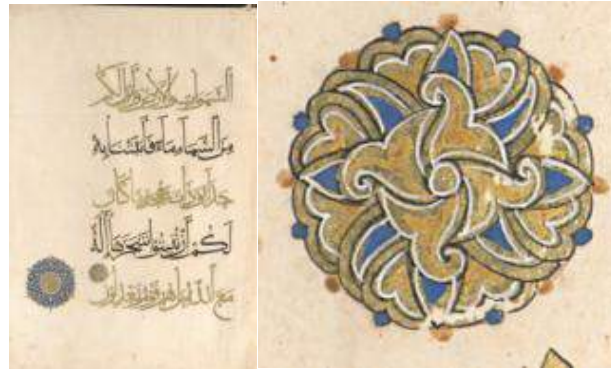 السَّمٰوَاتِ وَالْأَرْضَ وَأَنْزَلَ لَكُمْ
مِنَ السَّمَاءِ مَاءً فَأَنْبَتْنَا بِهِ
حَدَائِقَ ذَاتَ بَهْجَةٍ مَا كَانَ
لَكُمْ أَنْ تُنْبِتُوا شَجَرَهَا أَإِلٰهٌ
مَعَ اللّٰهِ بَلْ هُمْ قَوْمٌ يَعْدِلُونَ